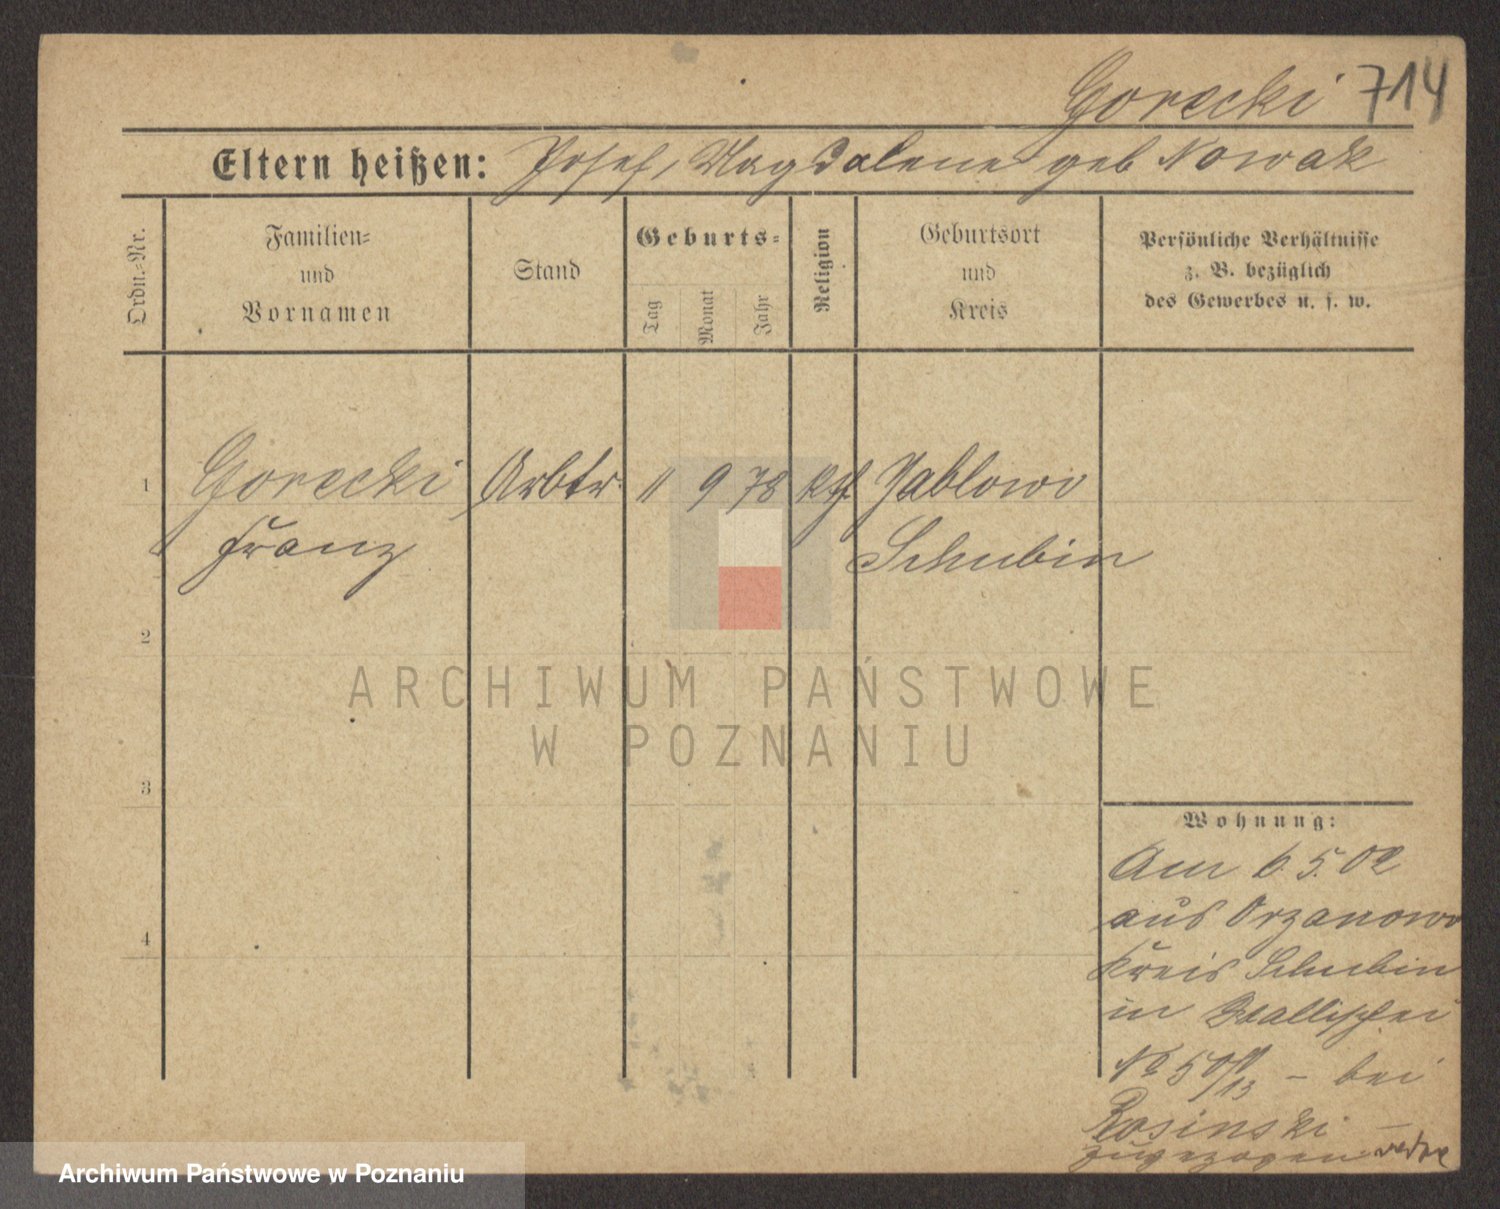 Gorecki 714
Eltern heißen: Josef, Magdalene geb Nowak
Ordn.-Nr.
Familien-
und
Vornamen
Stand
Geburts-
Tag
Monat
Jahr
Religion
Geburtsort
und
Kreis
Persönliche Verhältnisse
z. B. bezüglich
des Gewerbes u. s. w.
1 Gorecki Arbtr. 11 9 78 kth. Jablowo
Franz Schubin
2
3
4
Wohnung:
Am 6.5.02
aus Orzanowo
Kreis Schubin
in Wallischei
No 50/13 - bei
Rosinski -
zugezogen
ARCHIWUM PAŃSTWOWE
W POZNANIU
Archiwum Państwowe w Poznaniu